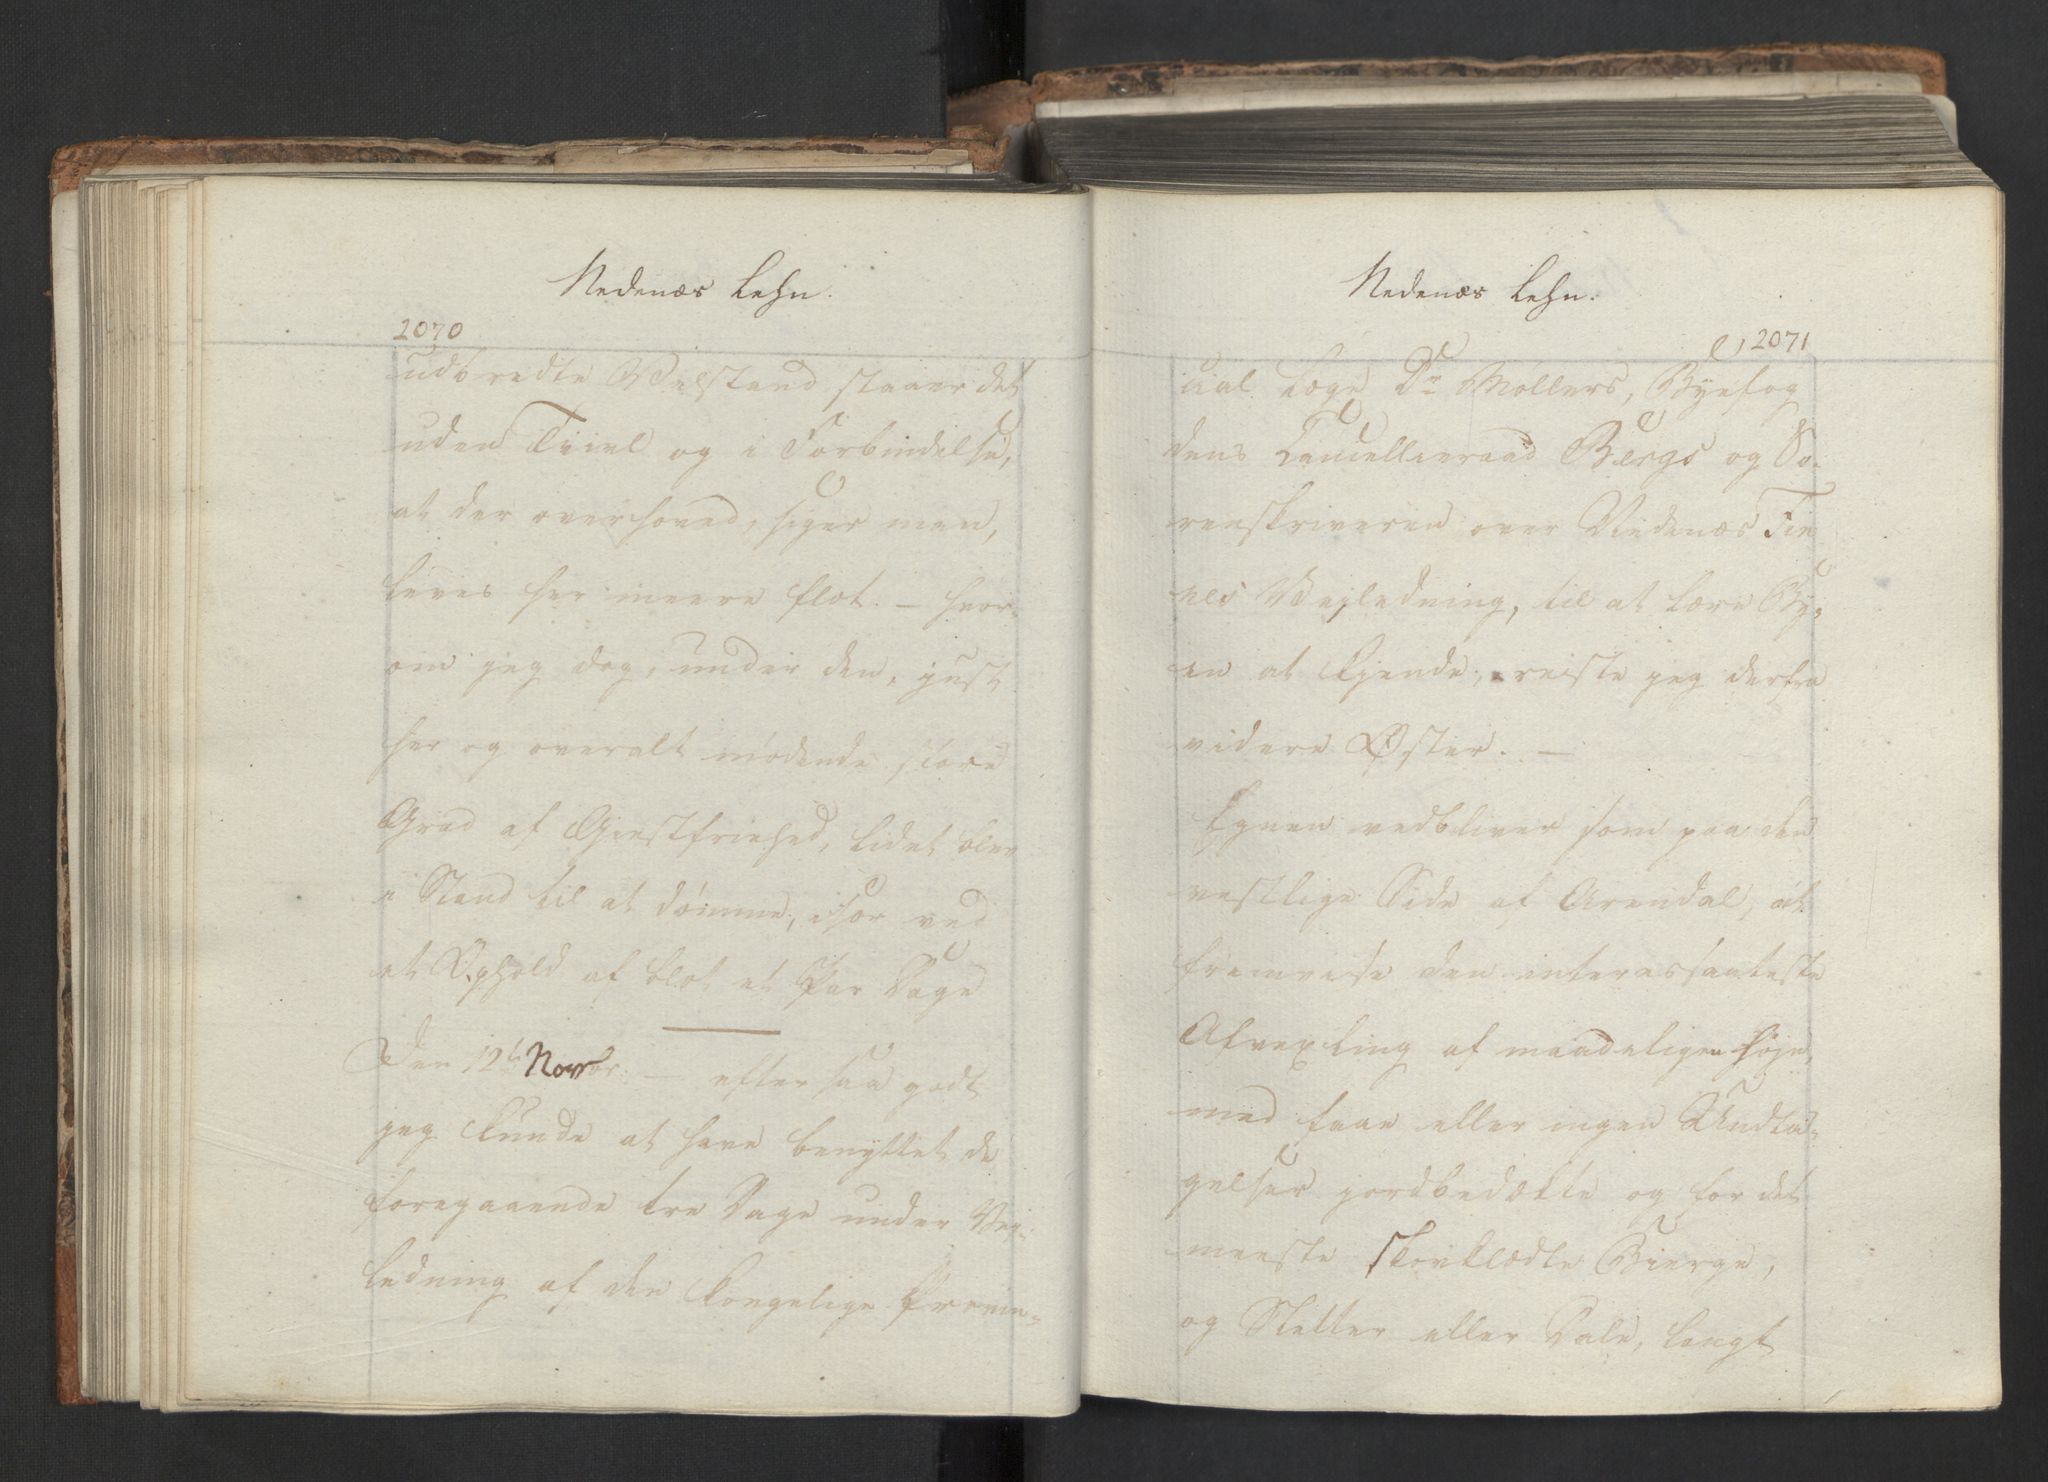 Nedenæs Lehn.
2070
udbredte Velstand staaer det
uden Tvivl og i Forbindelse,
at der overhoved, siger man,
leves her meere flot. – hvor-
om jeg dog, under den, just
her og overalt mödende store
Grad af Giestfriehed, lidet blev
i Stand til at dömme, især ved
et Ophold af blot et Par Dage
Den 12te Novbr. – efter saa godt
jeg kunde at have benyttet de
foregaaende tre Dage under Vej-
ledning af den kongelige Provin-
Nedenæs Lehn.
2071
cial Læge Dr Møllers, Byefog
dens Cancellieraad Bergs og So-
renskriveren over Nedenæs Fin
nes Vejledning, til at lære By-
en at kjende, reiste jeg derfra
videre Øster. –
Egnen vedbliver som paa den
vestlige Side af Arendal, at
fremvise den interessanteste
Afvexling af maadeligen høje,
med faae eller ingen Undta-
gelser jordbedækte og for det
meeste skovklædte Bierge,
og Sletter eller Dale, langt